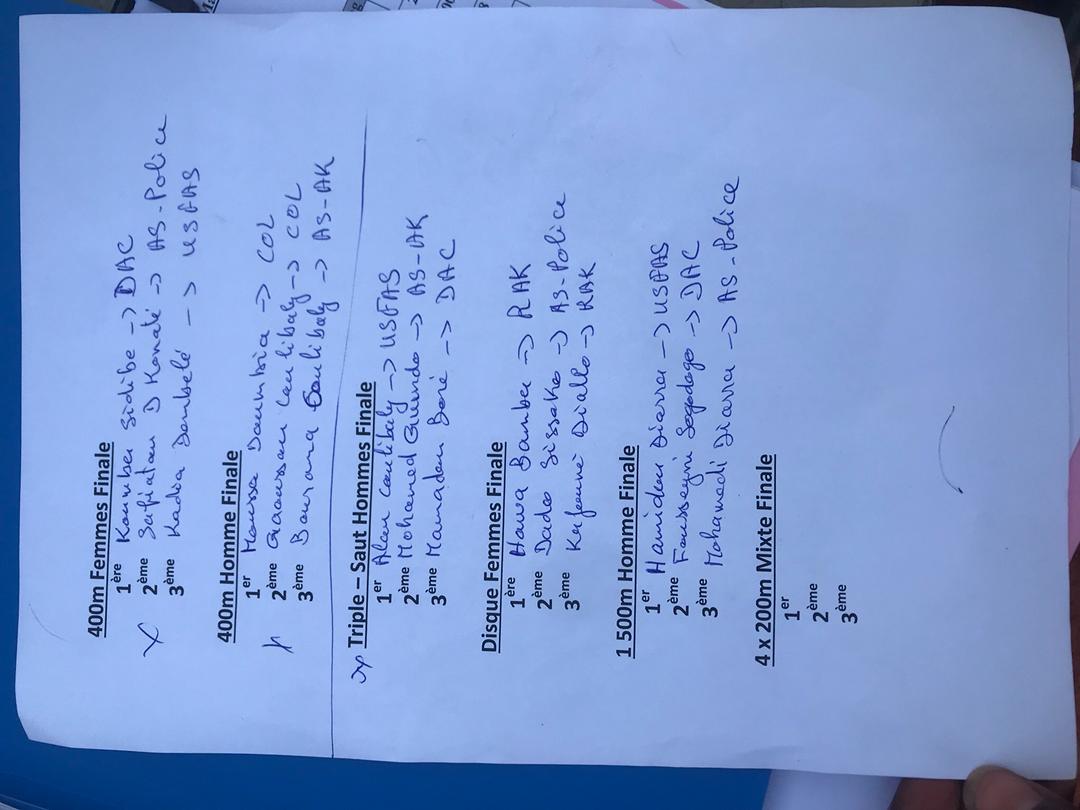 400m Femmes Finale
1ère Koumba Sidibe -> DAC
2ème Safiatou D Konaté -> AS-Police
3ème Kadia Dembelé -> USFAS
400m Homme Finale
1er Moussa Doumbia -> COL
2ème Gaoussou Coulibaly -> COL
3ème Bourama Coulibaly -> AS-AK
Triple – Saut Hommes Finale
1er Alou Coulibaly -> USFAS
2ème Mohamed Guindo -> AS-AK
3ème Mamadou Boré -> DAC
Disque Femmes Finale
1ère Hawa Bamba -> RAK
2ème Dado Sissoko -> AS-Police
3ème Diallo -> RAK
1 500m Homme Finale
1er Hamidou Diarra -> USFAS
2ème Fousseyni Sogodogo -> DAC
3ème Mohamadi Diarra -> AS-Police
4 x 200m Mixte Finale
1er
2ème
3ème